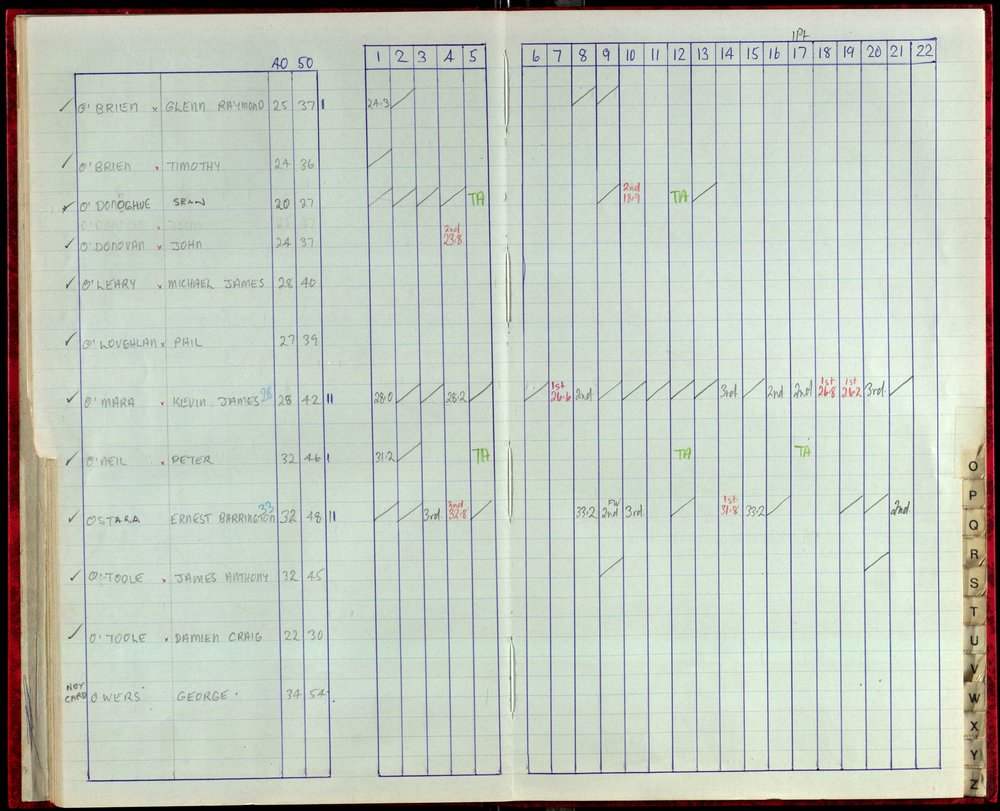 1Pt
40 50 1 2 3 4 5 6 7 8 9 10 11 12 13 14 15 16 17 18 19 20 21 22
✓ O'BRIEN x GLENN RAYMOND 25 37 I 24·3 / / /
✓ O'BRIEN x TIMOTHY 24 36 /
✓ O'DONOGHUE SEAN 20 27 / / / / TA / 2nd 18·9 TA /
✓ O'DONOVAN x JOHN 24 37 2nd 23·8
✓ O'LEARY x MICHAEL JAMES 28 40
✓ O'LOUGHLAN x PHIL 27 39
✓ O'MARA x KEVIN JAMES 28 28 42 II 28·0 / / 28·2 / / 1st 26·6 2nd / / / / / 3rd / 2nd 2nd 1st 26·8 1st 26·2 3rd /
✓ O'NEIL x PETER 32 46 I 31·2 / TA TA TA
✓ OSTARA ERNEST BARRINGTON 33 32 48 II / / 3rd 2nd 32·8 / 33·2 FW 2nd 3rd / 1st 31·8 33·2 / / / 2nd
✓ O'TOOLE x JAMES ANTHONY 32 45 / /
✓ O'TOOLE x DAMIEN CRAIG 22 30
NOT CARD OWERS GEORGE 34 54
O
P
Q
R
S
T
U
V
W
X
Y
Z